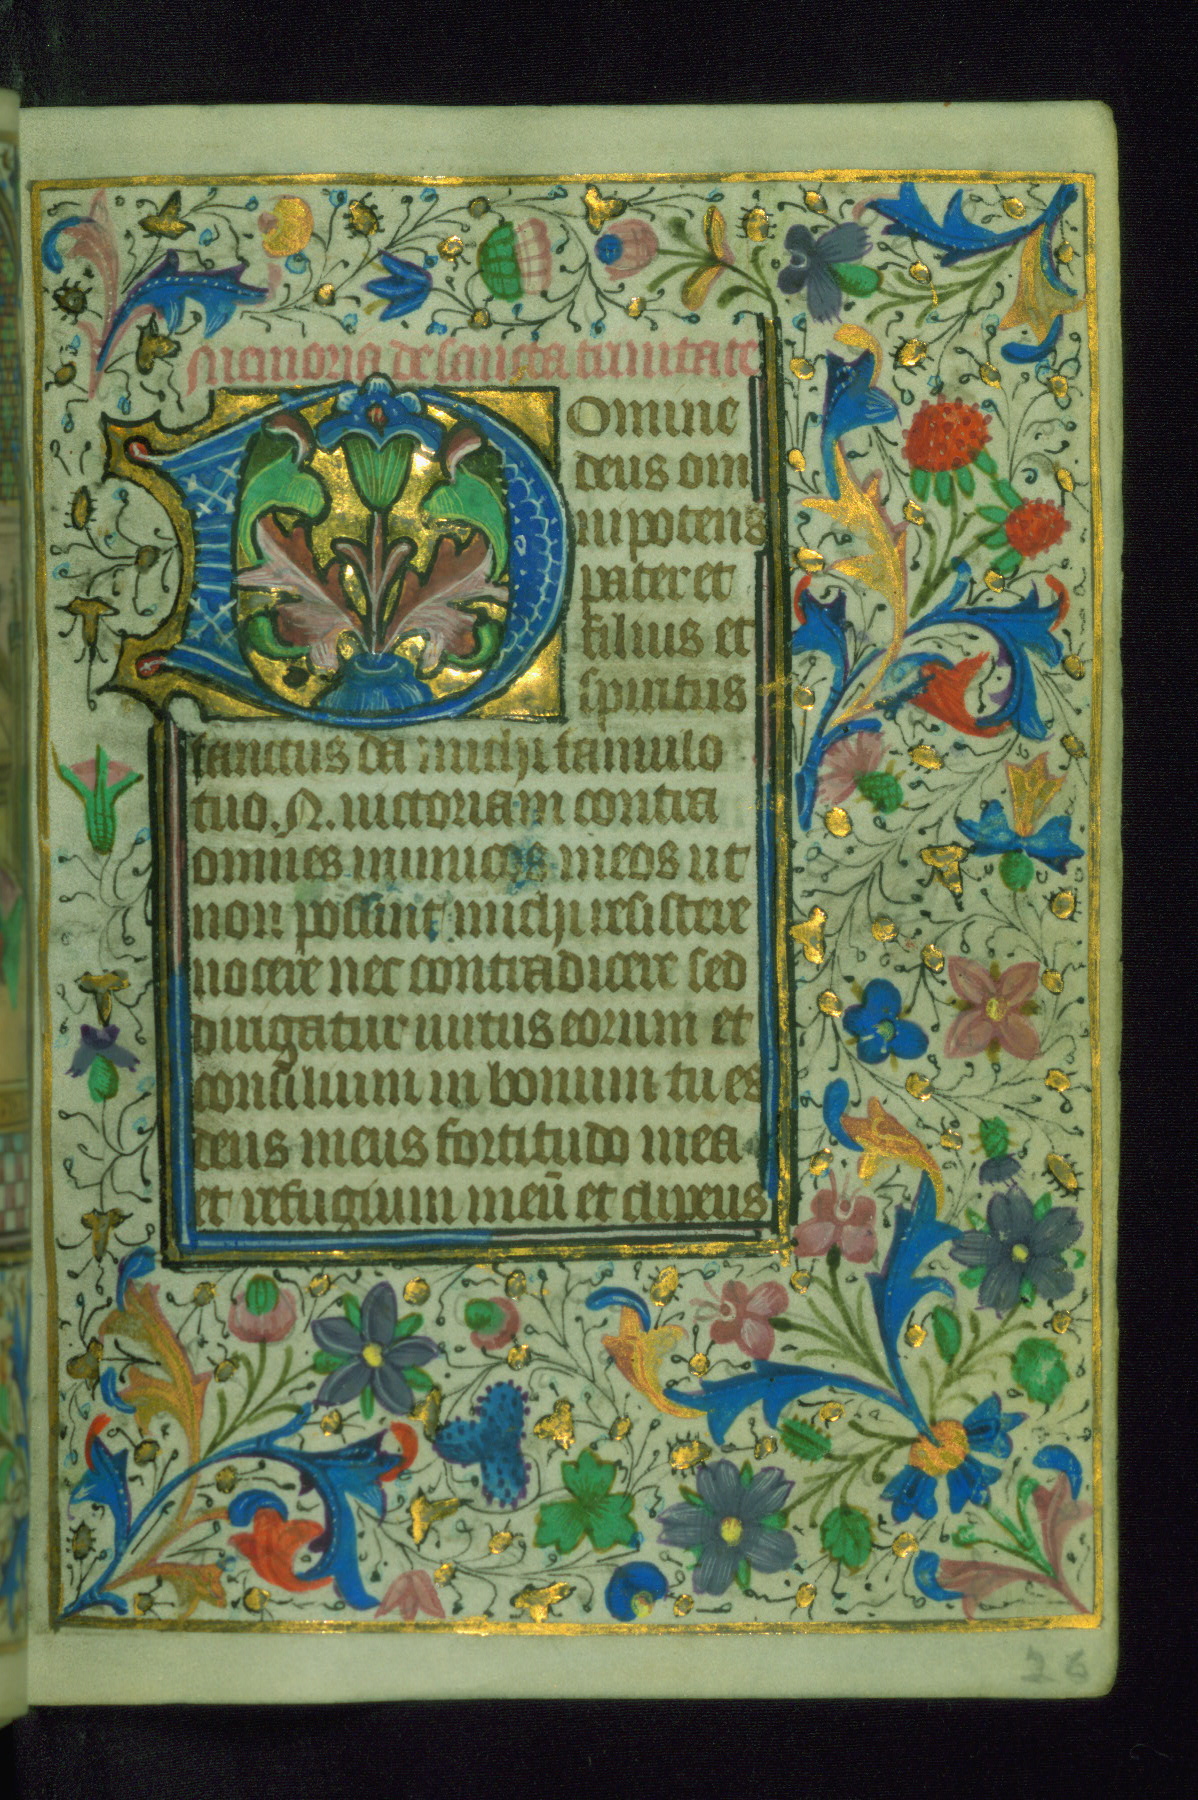 Memoria de sancta trinitate
Domine
deus om
nipotens
pater et
filius et
spiritus
sanctus da michi famulo
tuo .N. uictoriam contra
omnes inimicos meos ut
non possint michi resistere
nocere nec contradicere sed
dirigatur uirtus eorum et
consilium in bonum tu es
deus meus fortitudo mea
et refugium meū et clipeus
26